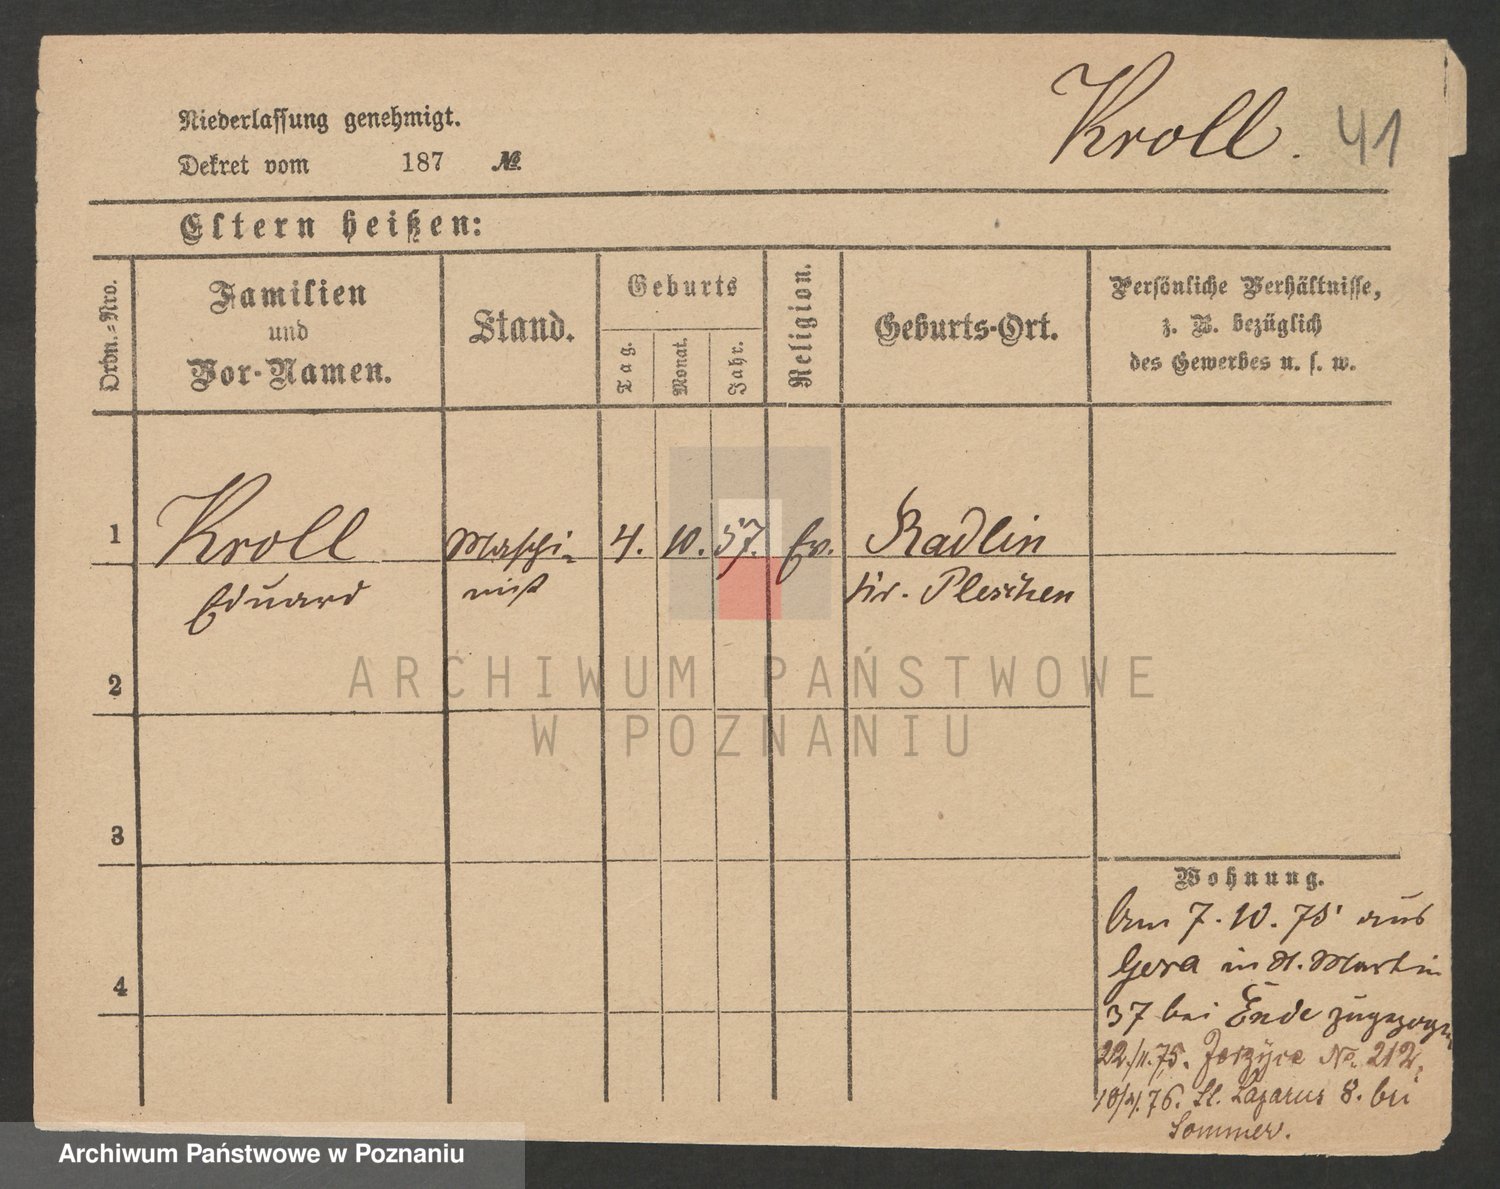 Kroll. 41
Niederlassung genehmigt.
Dekret vom 187 №
Eltern heißen:
Ordn.=Nro.
Familien
und
Vor-Namen.
Stand.
Geburts
Tag.
Monat.
Jahr.
Religion.
Geburts-Ort.
Persönliche Verhältnisse,
z. B. bezüglich
des Gewerbes u. s. w.
1 Kroll Maschi- 4. 10. 57. Ev. Radlin
Eduard nist Kr. Pleschen
2
3
4
Wohnung.
Am 7. 10. 75 aus
Gera in St. Martin
37 bei Ende zugezogen
22./11.75. Jerzyce No. 212,
18/4.76. St. Lazarus 8. bei
Sommer.
ARCHIWUM PAŃSTWOWE
W POZNANIU
Archiwum Państwowe w Poznaniu